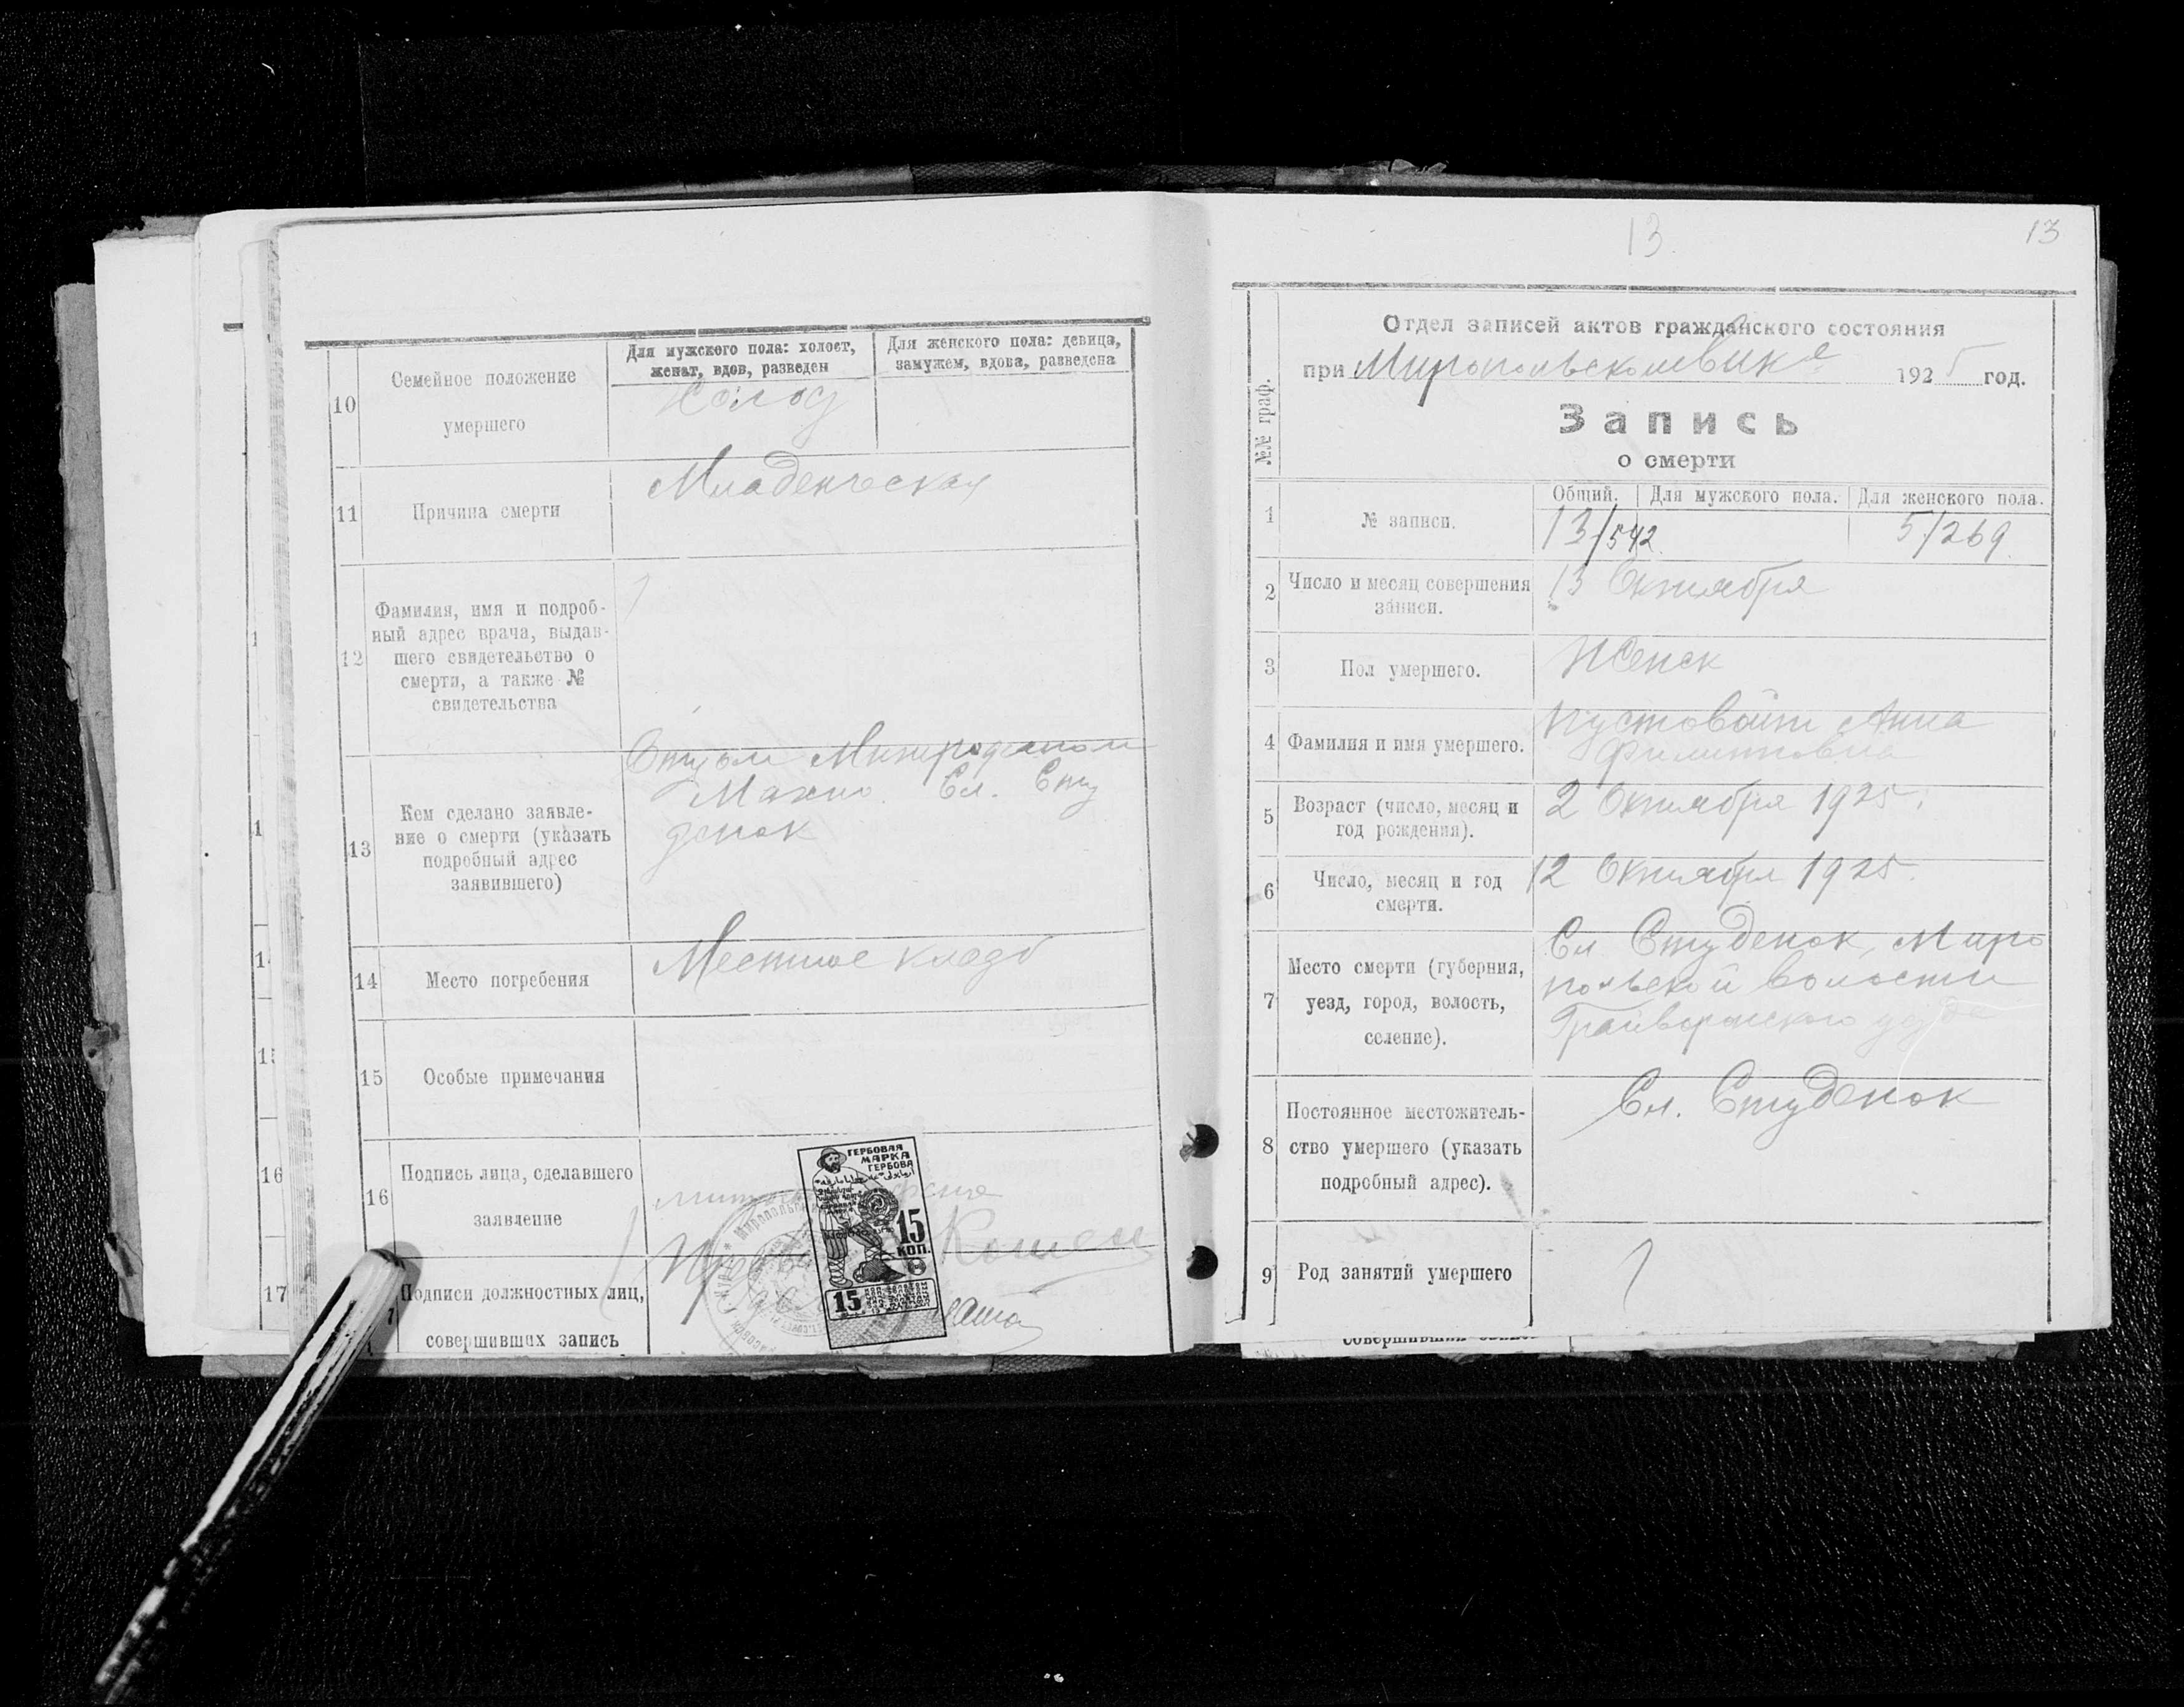 10
Семейное положение
умершего
Для мужского пола: холост,
женат, вдов, разведен
Для женского пола: девица,
замужем, вдова, разведена
Холос
11
Причина смерти
Младенческая
12
Фамилия, имя и подроб-
ный адрес врача, выдав-
шего свидетельство о
смерти, а также №
свидетельства
13
Кем сделано заявле-
ние о смерти (указать
подробный адрес
заявившего)
Отцом Митрофаном
Махно. Сл. Сту
денок
14
Место погребения
Местное кладб
15
Особые примечания
16
Подпись лица, сделавшего
заявление
ГЕРБОВАЯ
МАРКА
ГЕРБОВА
15
КОП.
15
Подписи должностных лиц,
совершивших запись
1
1
1
1
15
16
17
13
13
№№ граф.
Отдел записей актов гражданского состояния
при Миропольском вике 1925 год.
Запись
о смерти
1
№ записи.
Общий. Для мужского пола. Для женского пола.
13/542 5/269
2
Число и месяц совершения
записи.
13 Октября
3
Пол умершего.
Женск
4
Фамилия и имя умершего.
Пустовойт Анна
Филипповна
5
Возраст (число, месяц и
год рождения).
2 Октября 1925.
6
Число, месяц и год
смерти.
12 Октября 1925.
7
Место смерти (губерния,
уезд, город, волость,
селение).
Сл Студенок, Миро
польской волости
Грайворонского уезда
8
Постоянное местожитель-
ство умершего (указать
подробный адрес).
Сл. Студенок
9
Род занятий умершего